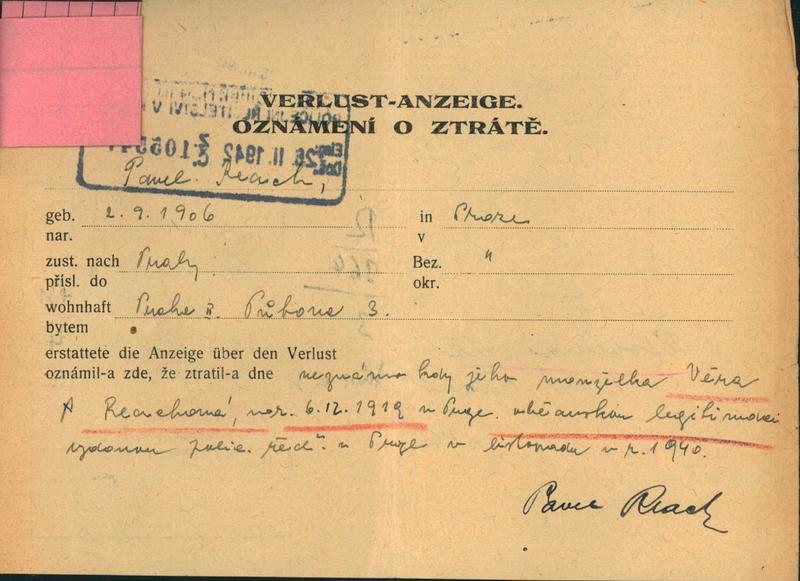 VERLUST-ANZEIGE.
OZNÁMENÍ O ZTRÁTĚ.
26. II. 1942 Z.Č. 10554
Pavel Reach,
geb. 2. 9. 1906 in Praze
nar. v
zust. nach Prahy Bez. "
přísl. do okr.
wohnhaft Praha II. Příkopa 3.
bytem
erstattete die Anzeige über den Verlust
oznámil-a zde, že ztratil-a dne neznámo kdy jeho manželka Věra
Reachová, nar. 6.12.1919 v Praze občanskou legitimaci
vydanou polic. ředit. v Praze v listopadu v r. 1940.
Pavel Reach